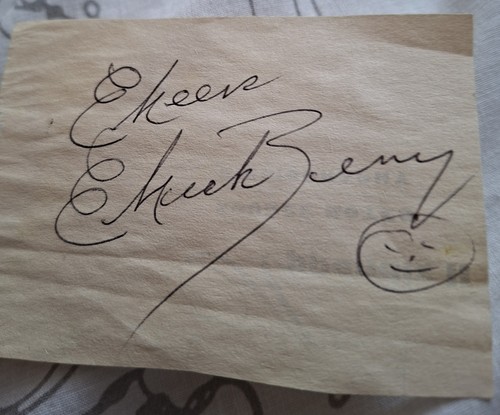 Cheers
Chuck Berry